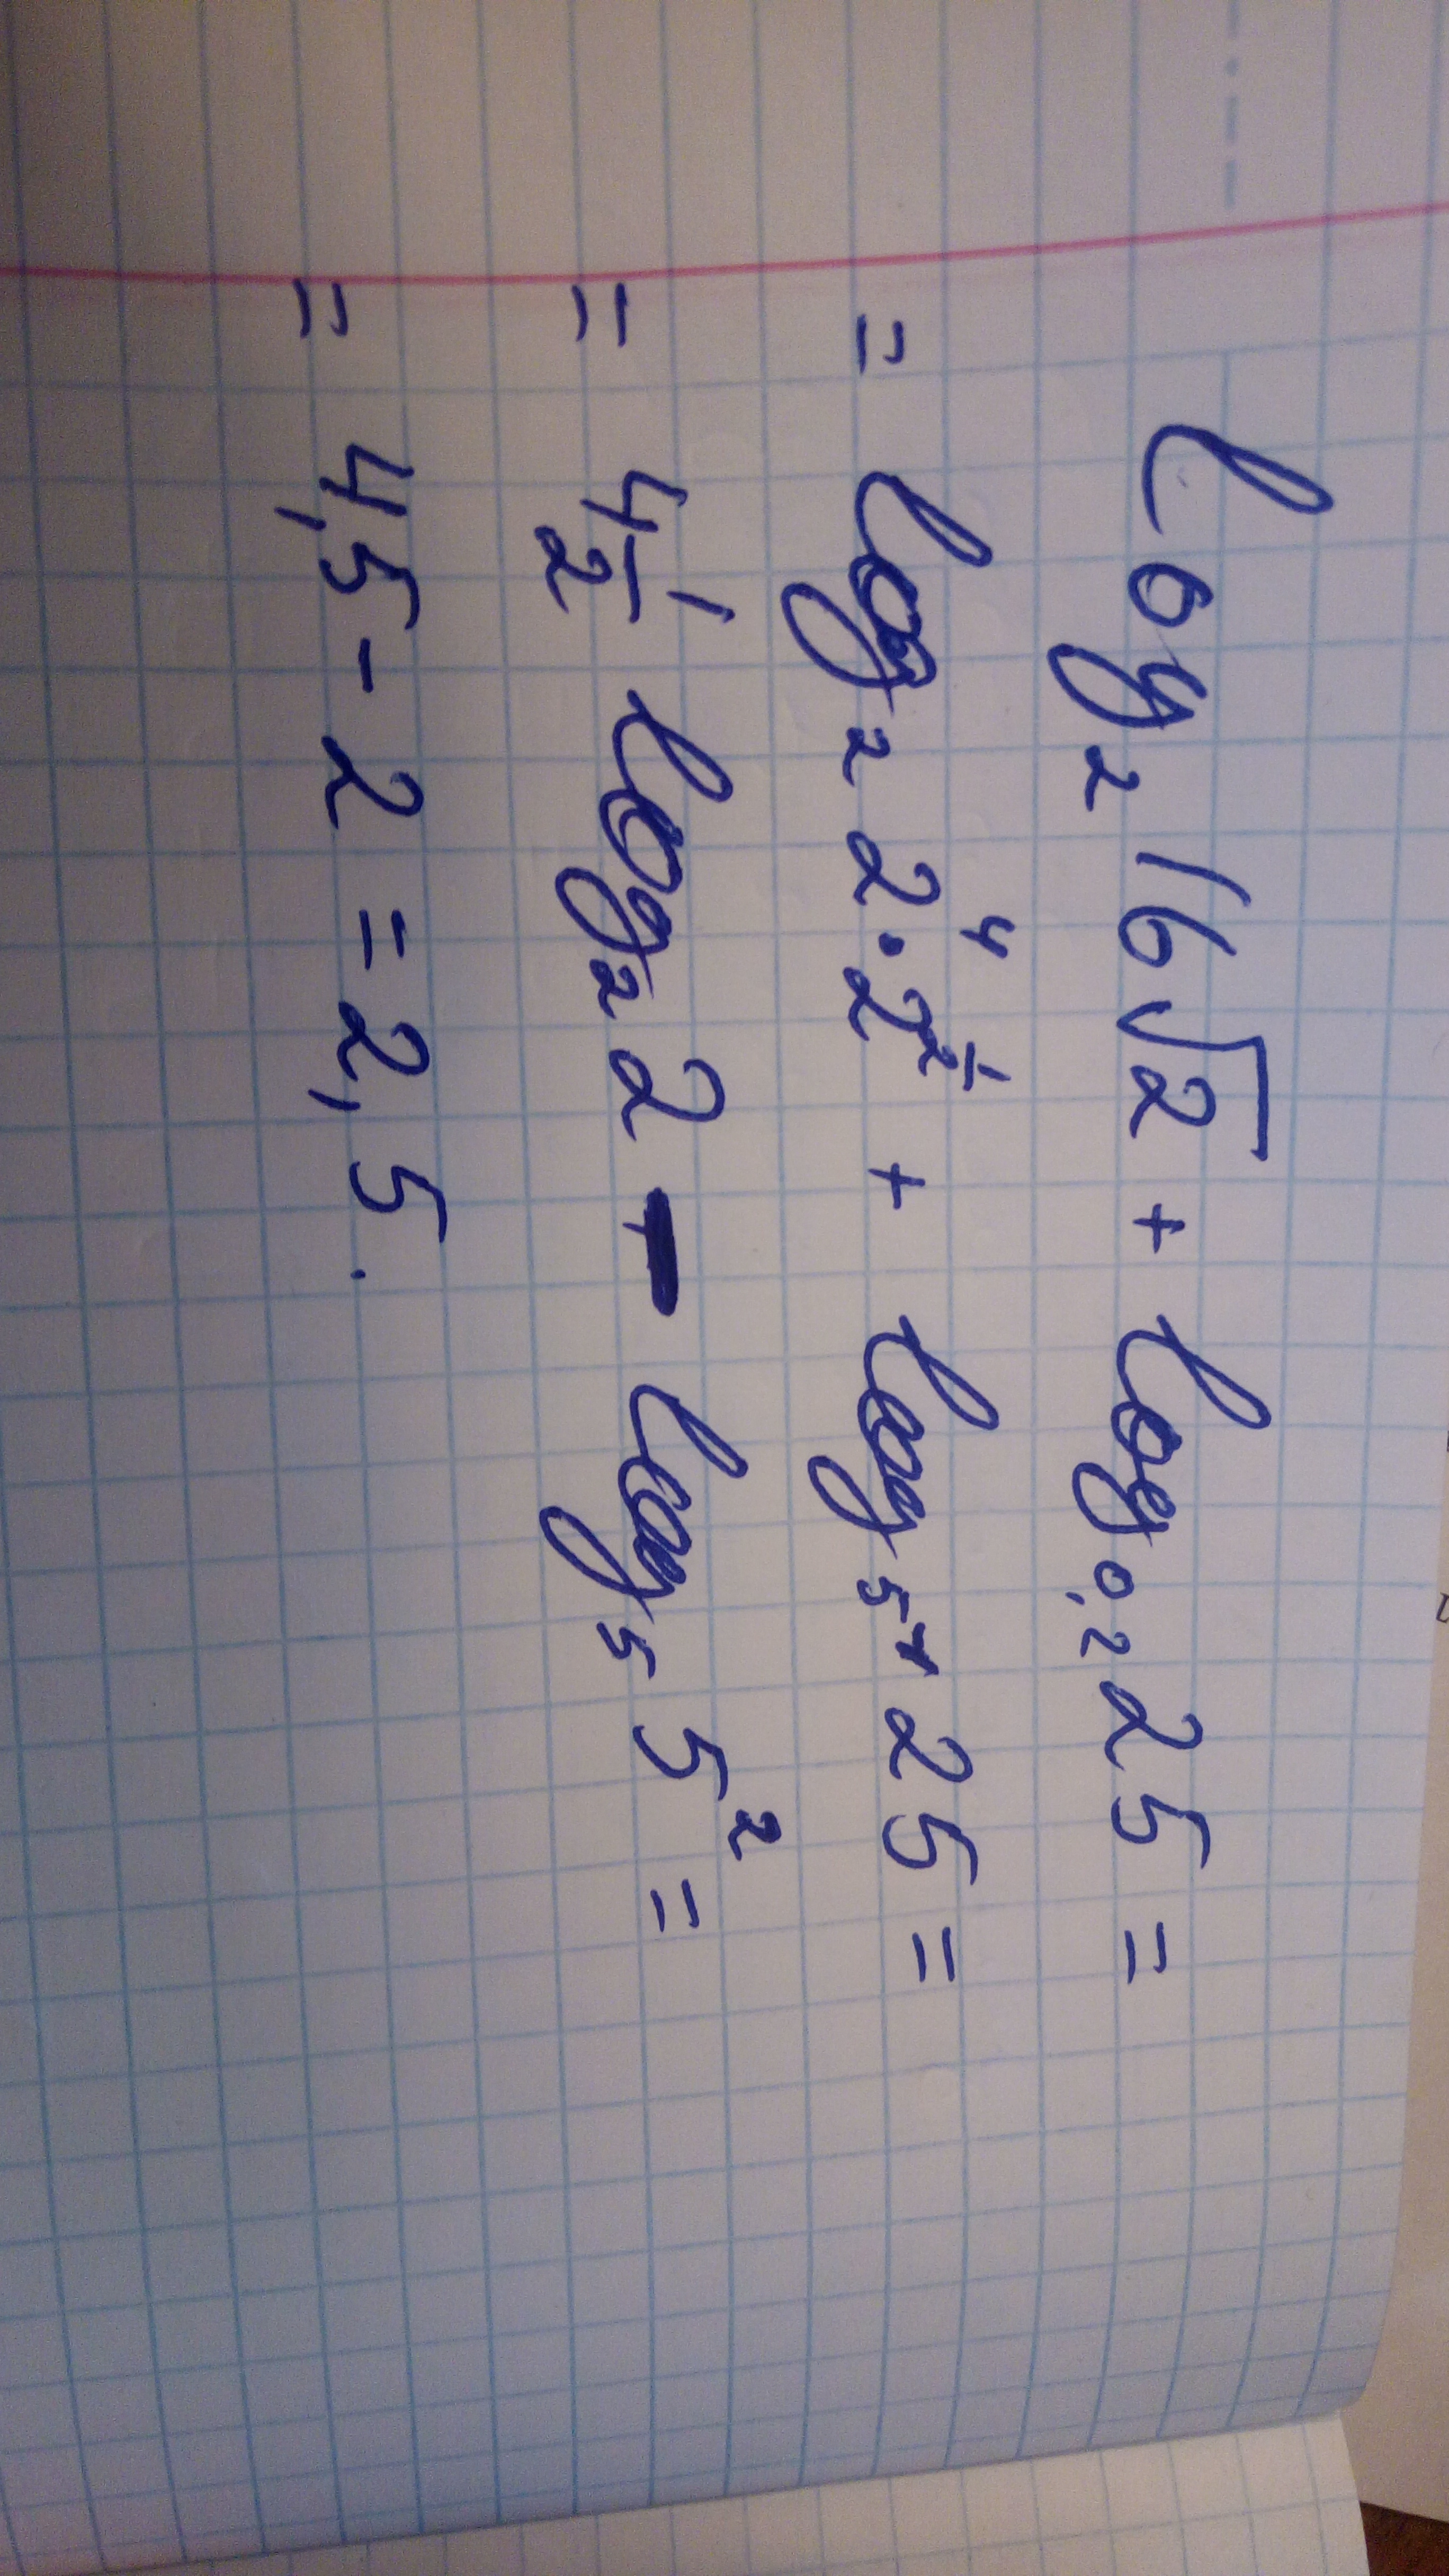 log₂ 16√2 + log₀,₂ 25 =
= log₂ 2⁴ · 2^½ + log₅⁻¹ 25 =
= 4½ log₂ 2 - log₅ 5² =
= 4,5 - 2 = 2,5.